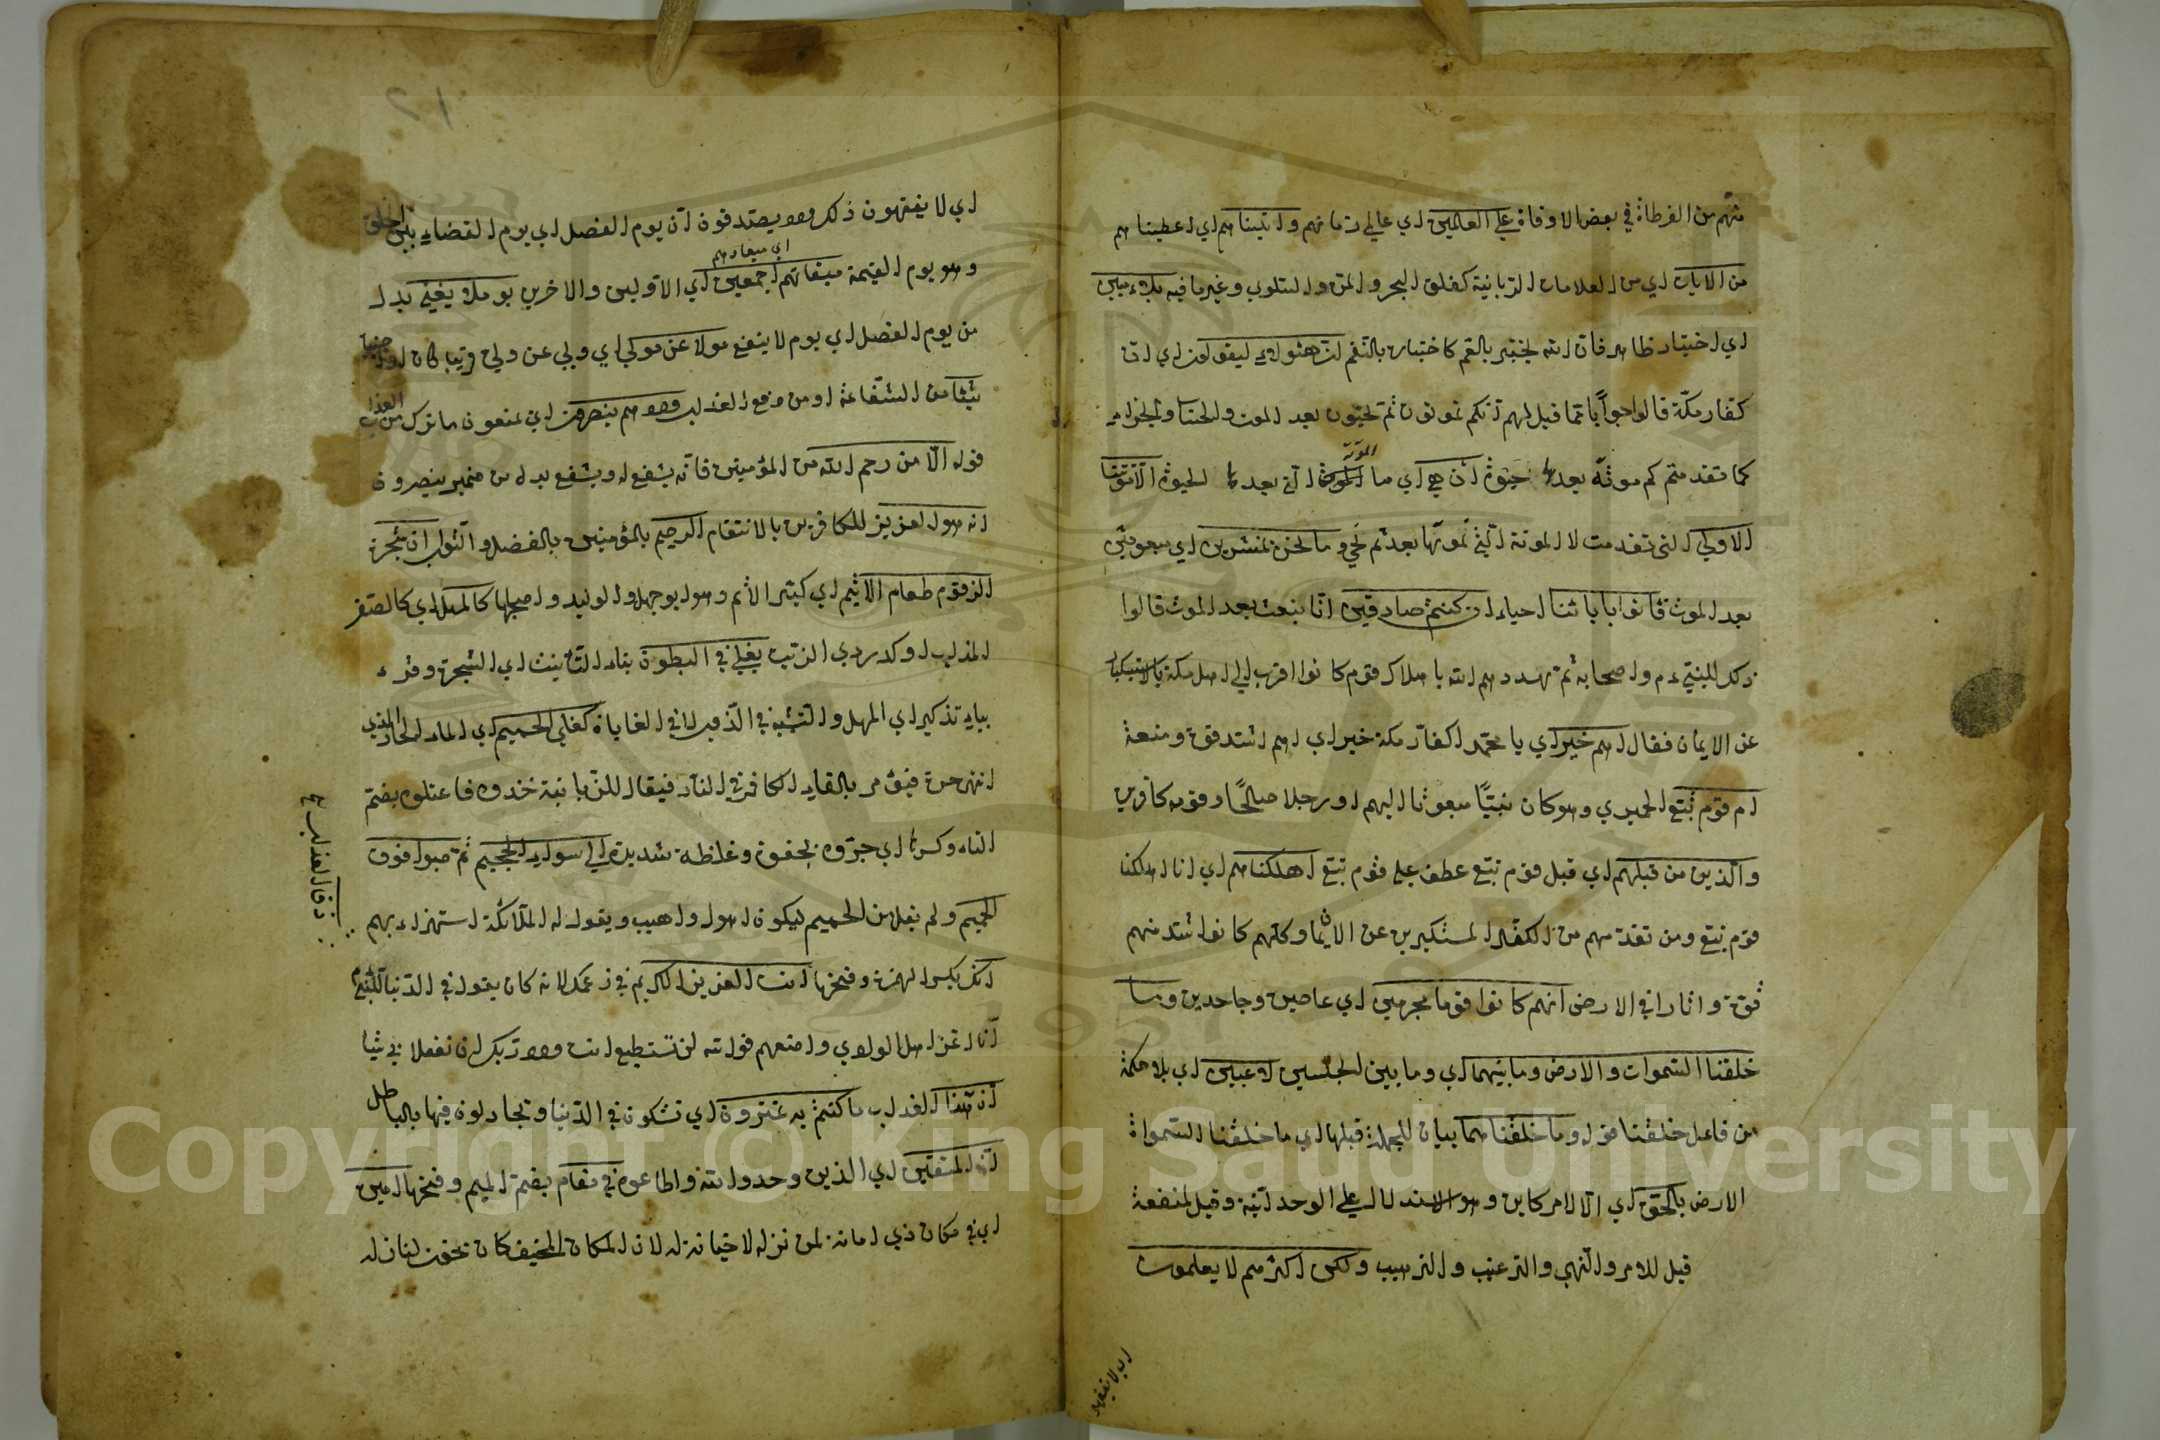 منهم من الفرطاة في بعض الاوقاة علي العالمين اي عالمي زمانهم واتيناهم اي اعطيناهم
من الايات اي من العلامات الربانية كفلق البحر والمن والسلوي وغيرها فيه بلاء مبين
اي اختبار ظاهر فان الله يختبر بالنعم ان هئولاء ليقولون اي ان
كفار مكة قالوا جوابا لما قيل لهم انكم تموتون ثم تحيون بعد الموت
كما تقدمتم كم موتة بعدها حيوة ان هي اي ما الموتة التي بعدها الحيوة الا موتتنا
الاولي التي تقدمت لا الموتة التي نموتها بعد ثم نحي وما نحن بمنشرين اي مبعوثين
بعد الموت فاتوا بابائنا احياء ان كنتم صادقين انا نبعث بعد الموت قالوا
ذلك للنبي ءم واصحابه ثم تهددهم الله باهلاك قوم كانوا اقرب الي اهل مكة
عن الايمان فقال اهم خير اي يا محمد اكفار مكة خير اي اهم اشد قوة ومنعة
ام قوم تبع الحميري وهو كان نبيا مبعوثا اليهم او رجلا صالحا وقومه كافرين
والذين من قبلهم اي قبل قوم تبع عطف علي قوم تبع اهلكناهم اي انا اهلكنا
قوم تبع ومن تقدمهم من الكفار المستكبرين عن الايمان وكلهم كانوا اشد منهم
قوة واثارا في الارض انهم كانوا قوما مجرمين اي عاصين وجاحدين وما
خلقنا السموات والارض وما بينهما اي وما بين الجنسين لاعبين اي بلا حكمة
من فاعل خلقنا قوله وما خلقناهما بيان للجملة قبلها اي ما خلقنا السمواة
الارض بالحق اي الا لامر كاين وهو الاستدلال علي الوحدانية وقيل لمنفعة
قيل للامر والنهي والترغيب والترهيب ولكن اكثرهم لا يعلمون
اي لا يفقهون
اي لا يفقهون ذلك ولا يصدقون ان يوم الفصل اي يوم القضاء بين الخلق
اي ميعادهم
وهو يوم القيمة ميقاتهم اجمعين اي الاولين والاخرين يوم لا يغني بدل
من يوم الفصل اي يوم لا ينفع مولا عن مولي اي ولي عن ولي
شيئا من الشفاعة او من دفع العذاب ولا هم ينصرون اي يمنعون مما نزل من العذاب
قوله الا من رحم الله من المؤمنين فانه يشفع له ويشفع بدل من ضمير ينصرون
انه هو العزيز للكافرين بالانتقام الرحيم بالمؤمنين بالفضل والثواب ان شجرة
الزقوم طعام الاثيم اي كثير الاثم وهو ابو جهل والوليد واصحابهما كالمهل اي كالصفر
المذاب او كدردي الزيت يغلي في البطون بتاء التانيث اي الشجرة وقرء
بياء تذكير اي المهل والتشبيه في الذوب لا في الغاياة كغلي الحميم اي الماء الحار الذي
انتهي حره فيؤمر بالقاء الكافر في النار فيقال للزبانية خذوه فاعتلوه بضم
التاء وكسرها اي جروه بعنف وغلظة شديدة الي سواء الجحيم ثم صبوا فوق
الجحيم ولم يقل من الحميم ليكون اهول واهيب ويقول له الملائكة استهزاء بهم
ذق انك بكسر الهمزة وفتحها انت العزيز الكريم في زعمك لانه كان يقول في الدنيا للنبي
انا اعز اهل الوادي وامنعهم فوالله لن تستطيع انت ولا ربك ان تفعلا في شيئا
ان هذا العذاب ما كنتم به تمترون اي تشكون في الدنيا وتجادلون فيها بالباطل
ان المتقين اي الذين وحدوا الله واطاعوه في مقام بضم الميم وفتحها امين
اي في مكان ذي امانة لمن نزله لا خيانة له لان المكان المخيف كان يخون لنازله